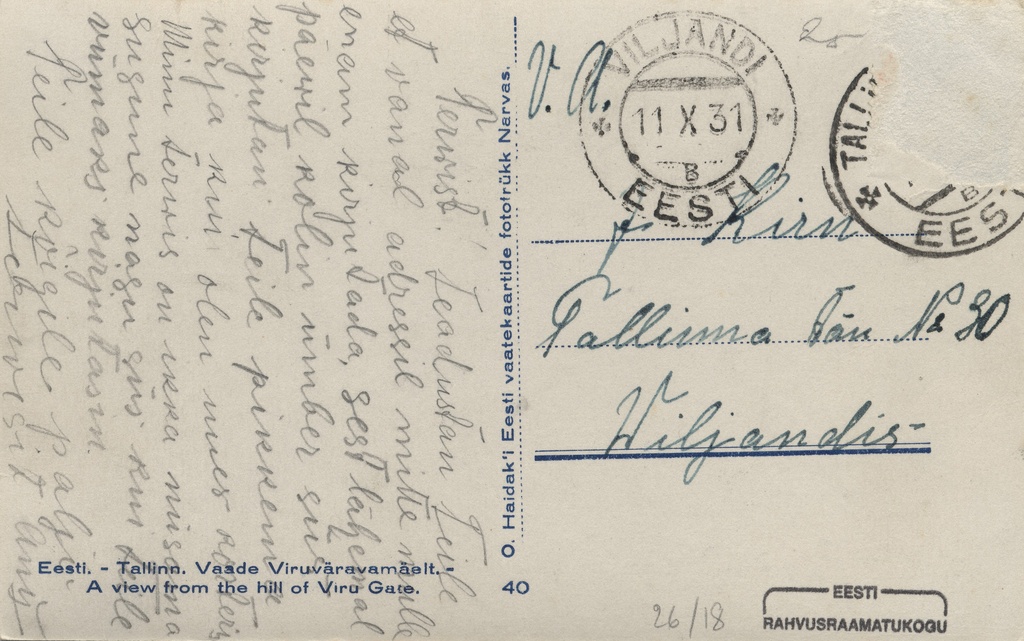 Terwist! Teadustan Teile
et vanal adressil mitte mulle
enam kirjutada, sest lähemal
päevil kolin ümber siis
kirjutan Teile pikkema
kirja kui olen uues korteris
Minu terwis on ikka
sugune nagu siis kui teile
viimaks kirjutasin.
Teile kõigile palju
Terwisit
Eesti. - Tallinn. Vaade Viruväravamäelt. -
A view from the hill of Viru Gate.
40
O. Haidak'i Eesti vaatekaartide fototrükk Narvas.
V. A.
VILJANDI
11 X 31
B
EESTI
TALLI
B
EES
J. Kirn
Tallinna tän № 30
Wiljandis
26/18
EESTI
RAHVUSRAAMATUKOGU